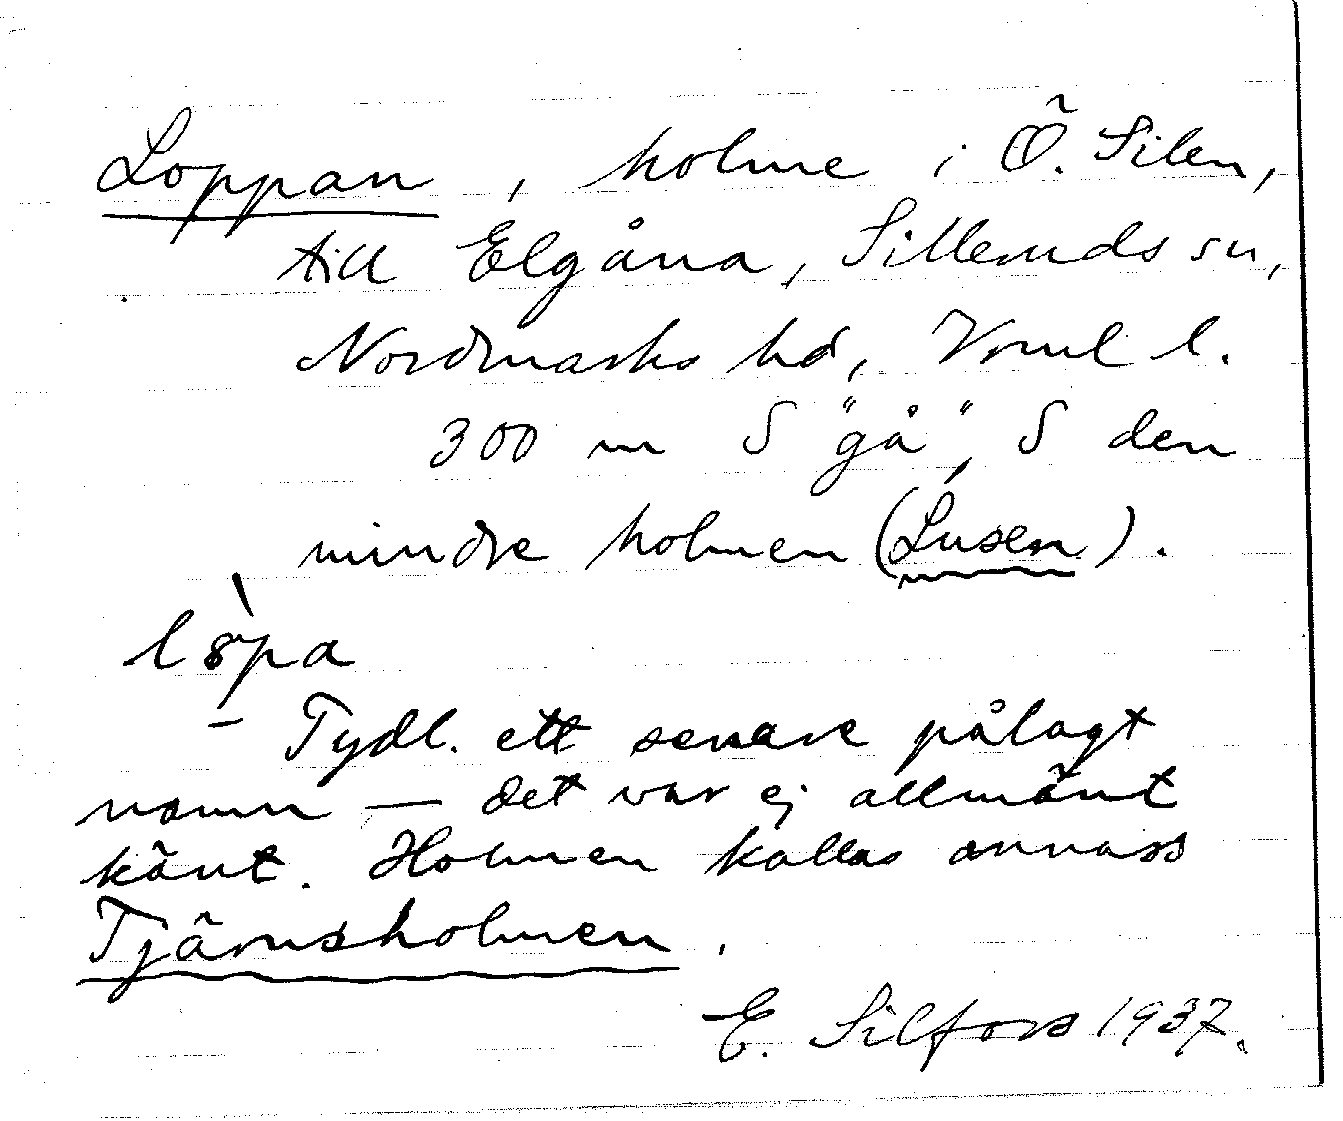 Loppan, holme i Ö. Silen,
till Elgåna, Silleruds sn,
Nordmarks hd, Vrml l.
300 m S "gå", S den
mindre holmen (Lusen).
lòpa
– Tydl. ett senare pålagt
namn — det var ej allmänt
känt. Holmen kallas annars
Tjärnsholmen.
E. Silfors 1937.